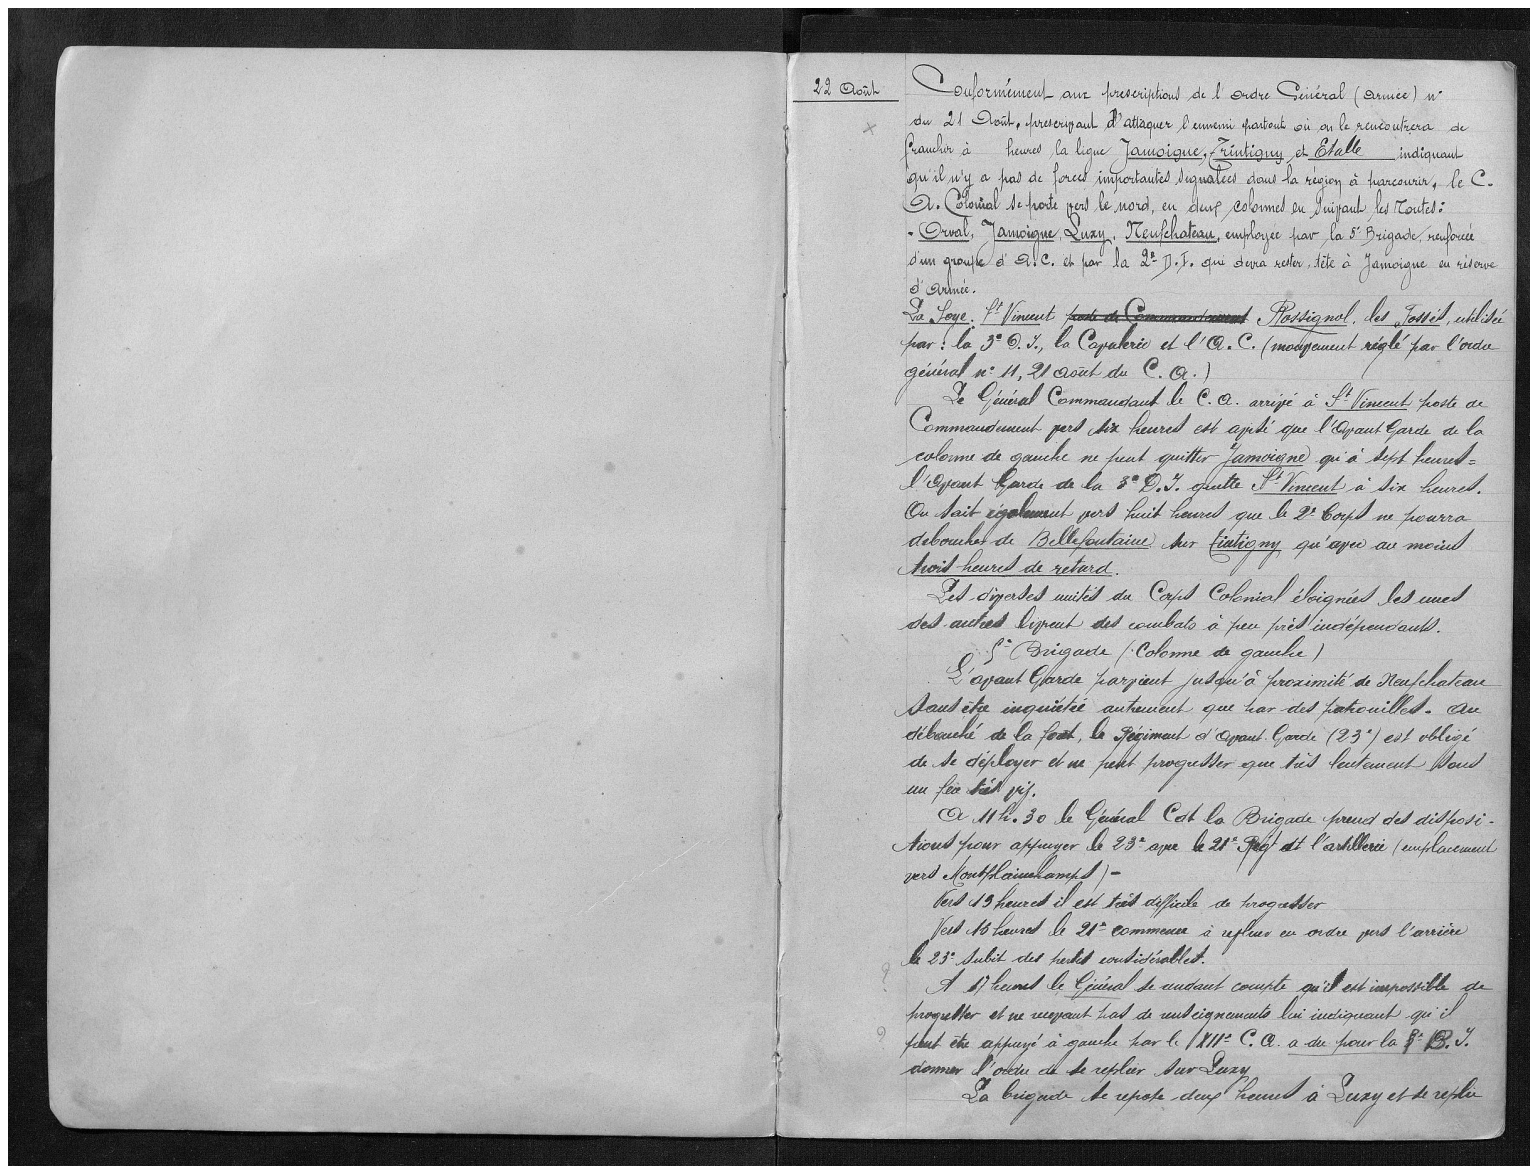 22 Août
Conformément aux prescriptions de l'ordre Général (armée) n°
du 21 Août, prescrivant d'attaquer l'ennemi partout où on le rencontrera de
franchir à heures la ligne Jamoigne, Tintigny et Etalle indiquant
qu'il n'y a pas de forces importantes signalées dans la région à parcourir, le C.
A. Colonial se porte vers le nord, en deux colonnes en suivant les routes :
- Orval, Jamoigne, Suxy, Neufchateau, employée par la 5e Brigade, renforcée
d'un groupe d'A.C. et par la 2e D.I. qui devra rester, tête à Jamoigne en réserve
d'Armée.
La Soye, St Vincent poste de Commandement Rossignol, les Fossés, utilisée
par : la 3e D.I., la Cavalerie et l'A.C. (mouvement réglé par l'ordre
général n° 11, 21 août du C.A.)
Le Général Commandant le C.A. arrivé à St Vincent poste de
Commandement vers six heures est avisé que l'Avant Garde de la
colonne de gauche ne peut quitter Jamoigne qu'à sept heures =
l'Avant Garde de la 3e D.I. quitte St Vincent à six heures.
On sait également vers huit heures que le 2e Corps ne pourra
déboucher de Bellefontaine sur Tintigny qu'avec au moins
trois heures de retard.
Les diverses unités du Corps Colonial éloignées les unes
des autres livrent des combats à peu près indépendants.
5e Brigade (Colonne de gauche)
L'avant Garde parvient jusqu'à proximité de Neufchateau
sans être inquiétée autrement que par des patrouilles. Au
débouché de la forêt, le Régiment d'Avant Garde (23e) est obligé
de se déployer et ne peut progresser que très lentement sous
un feu très vif.
A 11h.30 le Général Cdt la Brigade prend des disposi-
tions pour appuyer le 23e avec le 21e Régt et l'artillerie (emplacement
vers Montplainchamps) -
Vers 13 heures il est très difficile de progresser
Vers 15 heures le 21e commence à refluer en ordre vers l'arrière
le 23e subit des pertes considérables.
?
A 17 heures le Général se rendant compte qu'il est impossible de
progresser et ne recevant pas de renseignements lui indiquant qu'il
?
peut être appuyé à gauche par le XIIe C.A. a du pour la 5e B.I.
donner l'ordre de se replier sur Suxy
La brigade se repose deux heures à Suxy et se replie